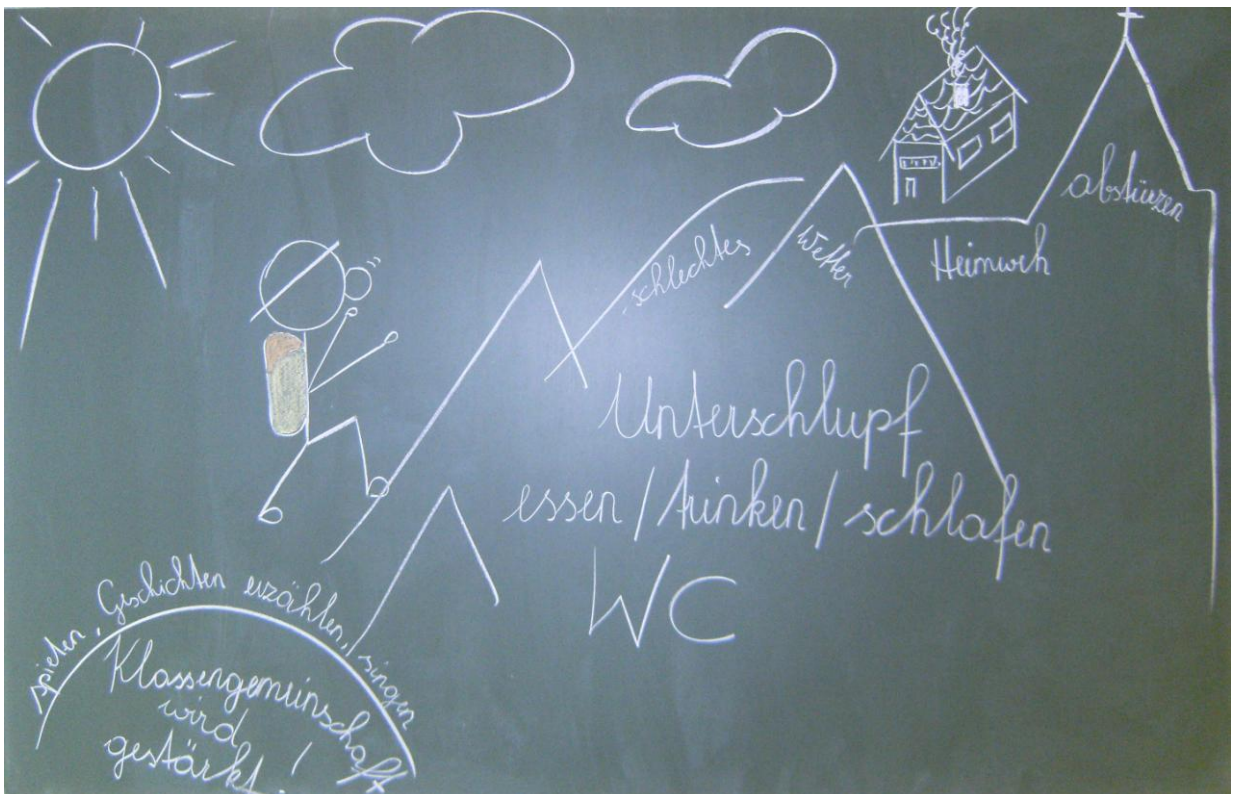 abstürzen
schlechtes
Wetter
Heimweh
Unterschlupf
essen / trinken / schlafen
WC
spielen, Geschichten erzählen, singen
Klassengemeinschaft
wird
gestärkt!